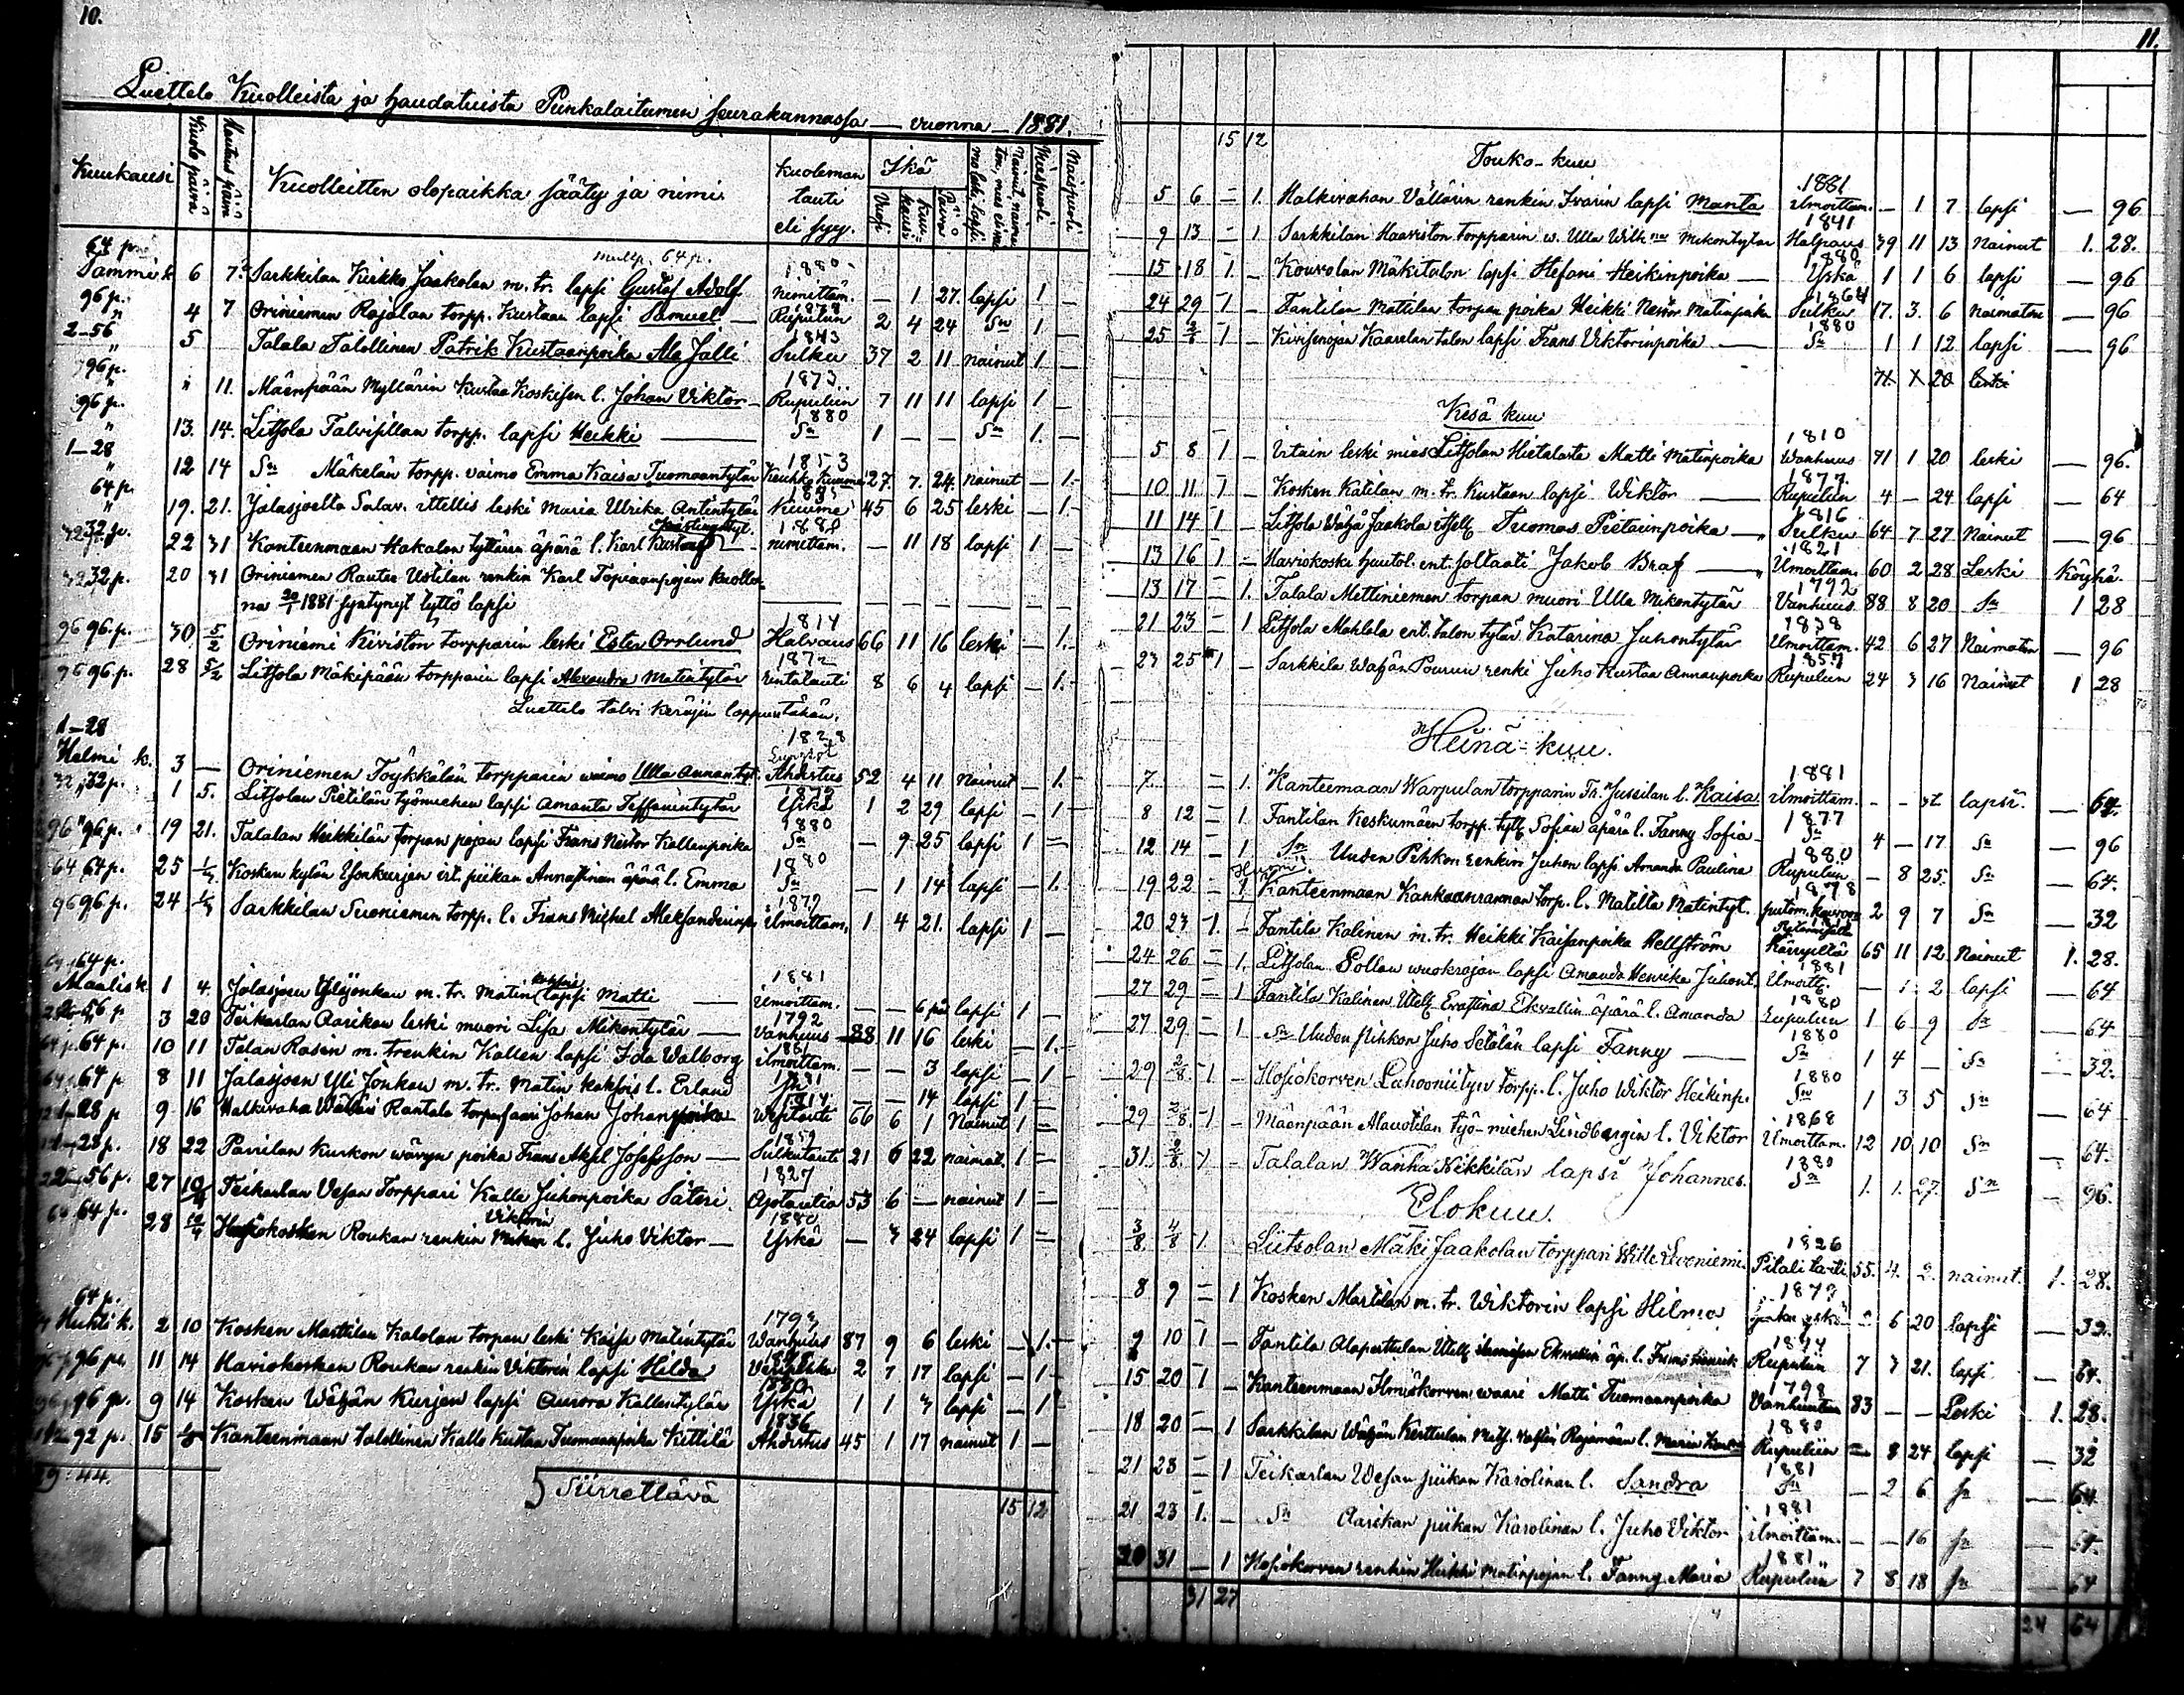 10.
Luettelo Kuolleista ja haudatuista Punkalaitumen seurakunnassa — vuonna — 1881.
Kuukausi Kuolo päivä Hautaus päivä Kuolleitten olopaikka sääty ja nimi. Kuoleman tauti eli syy. Ikä Vuosi Kuukausi Päivä Miespuoli Naispuoli
64 p. 1880
Tammi k. 6 7 Sarkkilan Kirkko Jaakolan m. tr. lapsi Gustaf Adolf nimittäm. — 1 27 lapsi 1 —
96 p. 1878
" 4 7 Oriniemen Rajalan torpp. Kustaan lapsi Samuel — Rupulin 2 4 24 Sn 1 —
2-56 1843
" 5 Talala Talollinen Patrik Kustaanpoika Ala Jalli Sulku 37 2 11 nainut 1 —
96 p. 1873
" " 11. Mäenpään Myllärin Kustaa Koskisen l. Johan Viktor — Rupuliin 7 11 11 lapsi 1 —
96 p. 1880
" 13. 14. Litsola Talvisillan torpp. lapsi Heikki — Sn 1 — — Sn 1. —
1-28 1853
" 12 14 Sn Mäkelän torpp. vaimo Emma Kaisa Tuomaantytär Keuhko kuume 27 7 24 nainut — 1.
64 p.
" 19. 21. Jalasjoelta Salav. ittellis leski Maria Ulrika Antintytär Kuume 45 6 25 leski — 1.
32 p. 1880
22 31 Kanteenmaan Hakalan tyttären äpärä l. Karl Kustaf — nimittäm. — 11 18 lapsi 1 —
32 p. 20 31 Oriniemen Rautee Ustilan renkin Karl Topiaanpojan kuolle
na 20/1 1881 syntynyt tyttö lapsi — — — — — —
1814
96 p. 30 5/2 Oriniemi Kiviston torpparin leski Ester Orrlund Halvaus 66 11 16 leski — 1.
1872
96 p. 28 5/2 Litsola Mäkipään torpparin lapsi Alexandra Matintytär Rintatauti 8 6 4 lapsi — 1.
Luettelo talvi Keräjiin loppuu tähän.
1-28 1828
Helmi k. 3 — Oriniemen Töykkälän torpparin waimo Ulla Annantyt. Ahdistus 52 4 11 Nainut — 1.
32 p. 1879
1 5. Litsolan Pietilän työmiehen lapsi Amanta Teffanintytär Yskä 1 2 29 lapsi — 1
96 p. 1880
19 21. Talalan Heikkilän torpan pojan lapsi Frans Nestor Kallenpoika Sn — 9 25 lapsi 1 —
64 p. 1880
25 Kosken kylän Isonkurjen irt. piikan Annastinan äpärä l. Emma Sn — 1 14 lapsi — 1.
96 p. 1879
24 Sarkkilan Suoniemen torpp. l. Frans Michel Aleksanderinp. ilmoittam. 1 4 21 lapsi 1 —
64 p. 1881
Maalisk. 1 4. Jalasjoen Ylijonkan m. tr. Matin kaksois lapsi Matti — ilmoittam. — — 6 lapsi 1 —
56 p 1792
3 20 Teikarlan Aarikan leski muori Lisa Mikontytär — Vanhuus 88 11 16 leski — 1.
64 p. 1881
10 11 Talan Rasin m. tr. renkin Kallen lapsi Ida Walborg ilmoittam. — — 3 lapsi — 1
64 p 1881
8 11 Jalasjoen Yli Jonkan m. tr. Matin kaksois l. Erland Sn — — 14 lapsi 1 —
28 p 1814
9 16 Halkivaha Wälläri Rantala torpan faari Johan Johanpoika 66 6 1 Nainut 1 —
28 p. 1859
18 22 Parrilan Kurkon wävyn poika Frans Aksel Josefsson — Sulkutauti 21 6 22 naimat. 1 —
56 p. 1827
27 Teikarlan Vesan Torppari Kalle Juhonpoika Säteri. 53 6 — nainut 1 —
64 p. 1880
28 Hapiokosken Roukan renkin Viktorin l. Juho Viktor — Yskä — 3 24 lapsi 1 —
64 p. 1793
Huhti k. 2 10 Kosken Marttilan Kalolan torpan leski Kaisa Matintytär Wanhuus 87 9 6 leski — 1.
96 p. 11 14 Hariokosken Roukan renkin Viktorin lapsi Hilda 2 7 17 lapsi — 1
96 p. 1880
9 14 Kosken Wähän Kurjen lapsi Aurora Kallentytär Yskä 1 1 3 lapsi — 1
92 p. 1836
15 Kanteenmaan talollinen Kalle Kustaa Tuomaanpoika Kittilä Ahdistus 45 1 17 nainut 1 —
Siirrettävä 15 12
11.
15 12
Touko-kuu
1881
5 6 — 1. Halkivahan Vällärin renkin Ivarin lapsi Manta ilmoittam. — 1 7 lapsi — 96
1841
9 13 — 1 Sarkkilan Haaviston torpparin w. Ulla Wilh:na Mikontytär Halvaus 39 11 13 Nainut 1. 28.
1880
15 18 1. — Kouvolan Mäkitalon lapsi Stefani Heikinpoika — Yskä 1 1 6 lapsi — 96
1864
24 29 1 — Fantilan Mattilan torpan poika Heikki Nestor Matinpoika Sulku 17. 3. 6 Naimaton — 96
1880
25 1 — Kivisenojan Kaarelan talon lapsi Frans Viktorinpoika — Sn 1 1 12 lapsi — 96
71 1 20 leski
Kesä kuu
1810
5 8 1 — Irtain leski mies Litsolan Hietalasta Matti Matinpoika Wanhuus 71 1 20 leski — 96.
1877.
10 11 1 — Kosken Kätilän m. tr. Kustaan lapsi Wiktor — Rupulin 4 — 24 lapsi — 64
1816
11 14 1 — Litsola Wähä Jaakola itsell. Tuomas Pietarinpoika — Sulku 64 7 27 Nainut — 96
1821
13 16 1 — Haviokoski huutol. ent. soltaati Jakob Graf — Ilmoittam. 60 2 28 Leski Köyhä.
1792
13 17 — 1. Talala Mettiniemen torpan muori Ulla Mikontytär Vanhuus 88 8 20 Sn 1 28
1838
21 23 — 1 Litsola Mahlala ent. talon tytär Katarina Juhontytär Ilmoittam. 42 6 27 Naimaton — 96
1857
23 25 1 — Sarkkila Wähän Pouruu renki Juho Kustaa Annanpoika Rupulin 24 3 16 Nainut 1 28
Heinä-kuu.
1881
7. — 1. Kanteenmaan Warpulan torpparin Fr. Jussilan l. Kaisa ilmoittam. - - lapsi. — 64.
1877
8 12 — 1 Fantilan Keskumäen torpp. tytt. Sofian äpärä l. Fanny Sofia Sn 4 — 17 Sn — 96
1880
12 14 — 1 Sn Uuden Pihkon renkin Juhon lapsi Amanda Paulina Rupulin — 8 25 Sn — 64.
1878
19 22 — 1. Kanteenmaan Kankaanrannan torp. l. Matilta Matintyt. putom. kaivoon 2 9 7 Sn — 32
20 23 1. — Fantila Kalinen m. tr. Heikki Kaisanpoika Hellström 65 11 12 Nainut 1. 28.
1881
24 26 — 1. Litsolan Sollan wuokrajan lapsi Amanda Henrika Juhont. Ilmoitt. — 1 2 lapsi — 64
1880
27 29 — 1 Fantila Kalinen Itell. Erastina Ekvallin äpärä l. Amanda Rupulin 1 6 9 Sn — 64
1880
27 29 — 1. Sn Uuden Pihkon Juho Setälän lapsi Fanny — Sn 1 4 — Sn — 32.
1880
29 2/8. 1 — Hosiokorven Lahooniityn torpp. l. Juho Wiktor Heikinp. Sn 1 3 5 Sn — 64
1868
29 2/8. 1 — Mäenpään Alauotilan työ-miehen Lindbergin l. Viktor Ilmoittam. 12 10 10 Sn — 64.
1880
31. 2/8. 1 — Talalan Wanha Nikkilän lapsi Johannes. Sn 1. 1. 27. Sn — 96.
Elokuu.
1826
3/8. 4/8 1. Liitsolan Mäki Jaakolan torppari Wille Leveniemi Pitali tauti 55. 4. 2. nainut. 1. 28.
1879
8 9 — 1 Kosken Martilan m. tr. Wiktorin lapsi Hilma 6 20 lapsi — 32.
1874
9 10 1 — Fantila Alaperttulan Itell. Ekvallin äp. l. Frans Henrik Rupulin 7 3 21. lapsi — 64.
1798
15 20 1 — Kanteenmaan Ilmiskorven waari Matti Tuomaanpoika Vanhuutta 83 — — Leski 1. 28.
1880
18 20 — 1 Sarkkilan Wähän Kerttulan Rajamäen l. Maria Rupuliin — 8 24 lapsi — 32
1881
21 23 — 1 Teikarlan Wesan piikan Karolinan l. Sandra Sn — 2 6 Sn — 64
1881
21 23 1. — Sn Aarikan piikan Karolinan l. Juho Viktor ilmoittam. — — 16 Sn — 64
1881
30 31 — 1 Hosiokorven renkin Heikki Matinpojan l. Fanny Maria Rupulin 7 8 18 Sn — 64
31 27
24 64